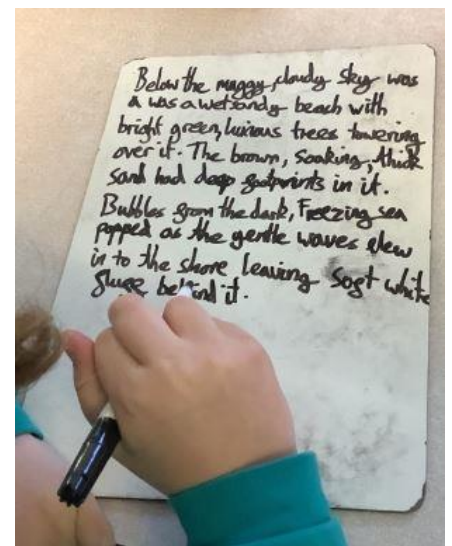 Below the muggy, cloudy sky was
a was a wet sandy beach with
bright green, luxious trees towering
over it. The brown, soaking, thick
sand had deep footprints in it.
Bubbles from the dark, Freezing sea
popped as the gentle waves flew
in to the shore leaving soft white
behind it.